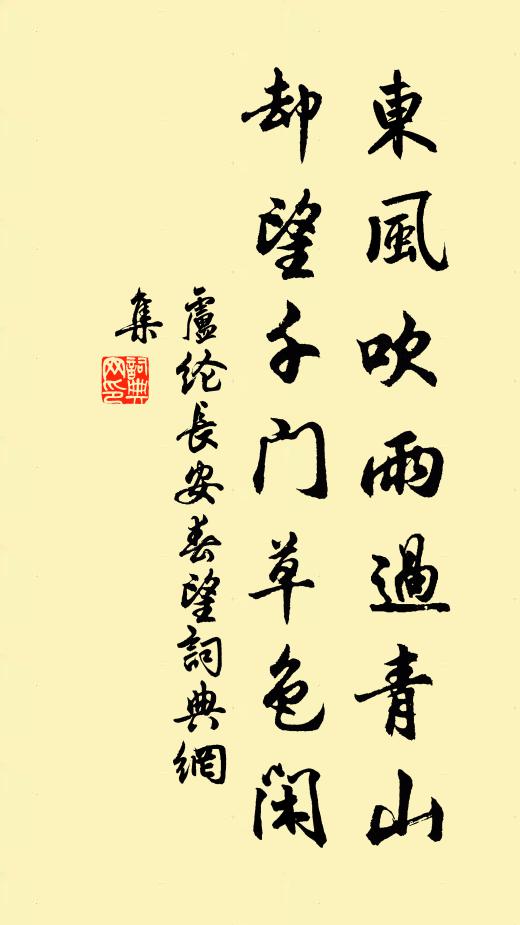 東風吹雨過青山
却望千門草色閑
盧纶長安春望詞典網
集
詞典網印